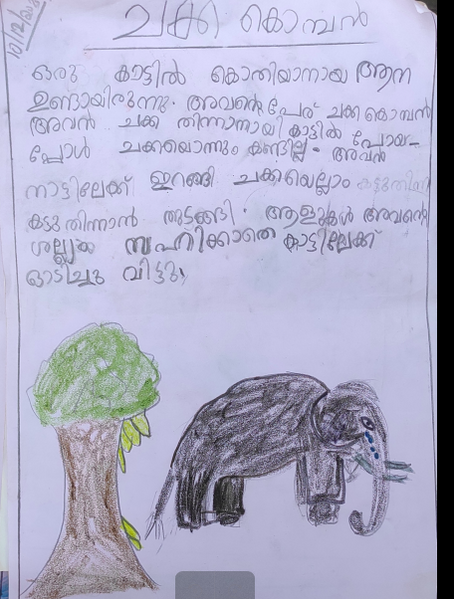 10/2/
ചക്ക കൊമ്പൻ
ഒരു കാട്ടിൽ കൊതിയാനായ ആന
ഉണ്ടായിരുന്നു. അവന്റെ പേര് ചക്ക കൊമ്പൻ
അവൻ ചക്ക തിന്നാനായി കാട്ടിൽ പോയ-
പ്പോൾ ചക്കയൊന്നും കണ്ടില്ല. അവൻ
നാട്ടിലേക്ക് ഇറങ്ങി ചക്കയെല്ലാം കട്ടുതിന്നി
കട്ടു തിന്നാൻ തുടങ്ങി. ആളുകൾ അവന്റെ
ശല്ല്യം സഹിക്കാതെ കാട്ടിലേക്ക്
ഓടിച്ചു വിട്ടു.